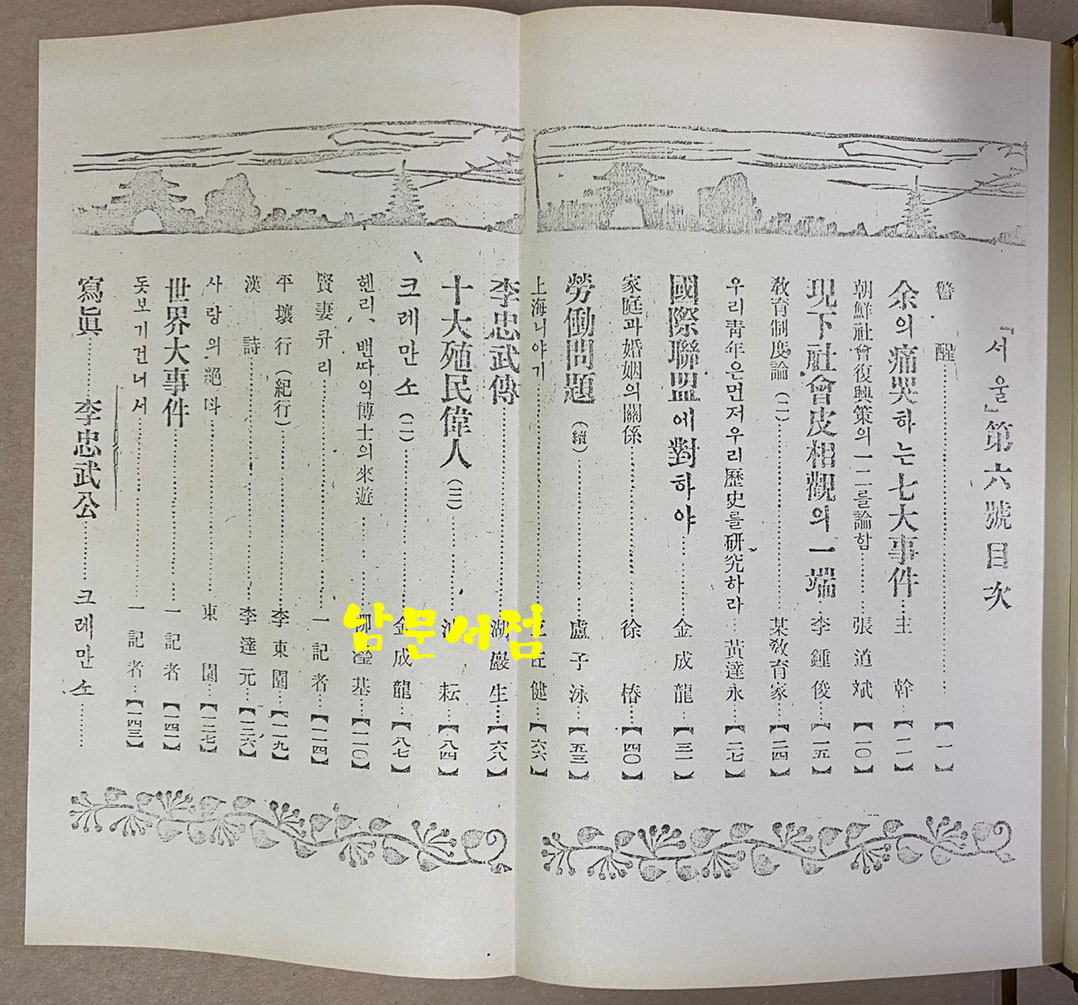 『서울』第六號目次
警醒 【一】
余의痛哭하는七大事件 主幹 【二】
朝鮮社會復興策의一二를論함 張道斌 【一〇】
現下社會皮相觀의一端 李鍾俊 【一五】
敎育制度論(二) 某敎育家 【二四】
우리靑年은먼저우리歷史를硏究하라 黃達永 【二七】
國際聯盟에對하야 金成龍 【三一】
家庭과婚姻의關係 徐椿 【四〇】
勞働問題(續) 盧子泳 【五三】
上海니야기 健 【六六】
李忠武傳 湖巖生 【六八】
十大殖民偉人(三) 耘 【八四】
크레만소(二) 金成龍 【八七】
헨리, 밴따익博士의來遊 瀅基 【一一〇】
賢妻큐리 一記者 【一一四】
平壤行(紀行) 李東園 【一一九】
漢詩 李達元 【一二六】
사랑의絕따 東園 【一二七】
世界大事件 一記者 【一四二】
돗보기건너서 一記者 【一四三】
寫眞 李忠武公 크레만소
남문서점